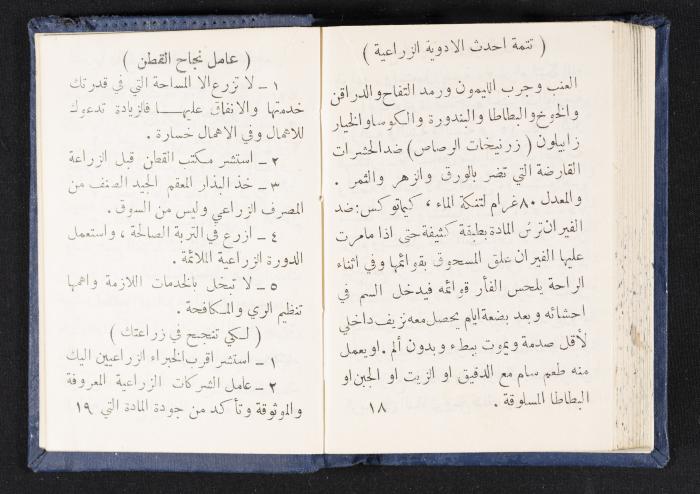 ( تتمة احدث الادوية الزراعية )
العنب وجرب الليمون ورمد التفاح والدراقن
والخوخ والبطاطا والبندورة والكوسا والخيار
زابيلون ( زرنيخات الرصاص ) ضد الحشرات
القارضة التي تضر بالورق والزهر والثمر .
والمعدل ٨٠ غرام لتنكة الماء ، كيماتوكس : ضد
الفيران ترش المادة بطبقة كثيفة حتى اذا ما مرت
عليها الفيران علق المسحوق بقوائمها وفي اثناء
الراحة يلحس الفأر قوائمه فيدخل السم في
احشائه وبعد بضعة ايام يحصل معه نزيف داخلي
لأقل صدمة ويموت ببطء وبدون ألم . او يعمل
منه طعم سام مع الدقيق او الزيت او الجبن او
البطاطا المسلوقة .
١٨
( عامل نجاح القطن )
١ – لا تزرع الا المساحة التي في قدرتك
خدمتها والانفاق عليها فالزيادة تدعوك
للاهمال وفي الاهمال خسارة .
٢ – استشر مكتب القطن قبل الزراعة
٣ – خذ البذار المعقم الجيد الصنف من
المصرف الزراعي وليس من السوق .
٤ – ازرع في التربة الصالحة ، واستعمل
الدورة الزراعية الملائمة .
٥ – لا تبخل بالخدمات اللازمة واهمها
تنظيم الري والمكافحة .
( لكي تنجح في زراعتك )
١ – استشر اقرب الخبراء الزراعيين اليك
٢ – عامل الشركات الزراعية المعروفة
والموثوقة وتأكد من جودة المادة التي ١٩